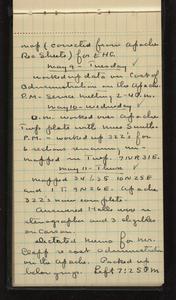 map (corrected from Apache
Rec Sheets) for EHC.
May 9 - Tuesday
Worked up data on Cost of
Administration on the Apache.
P.M. Service meeting 2-40 m.
May 10 - Wednesday
A.M. worked over Apache
Twp. plats with Miss Smith.
P.M. worked up 322's for
6 sections remaining un-
mapped in Twp. 7N R31E.
May 11 - Thurs
Mapped 34 & 35 10N 25E
and 1 T. 9N 26E. Apache
322's now complete.
Answered Hall's
stenographer and 3 eligibles
on Carson.
Dictated memo for Mr.
Clapp re cost administration
on the Apache. Packed up
belongings. Left 7:25 PM